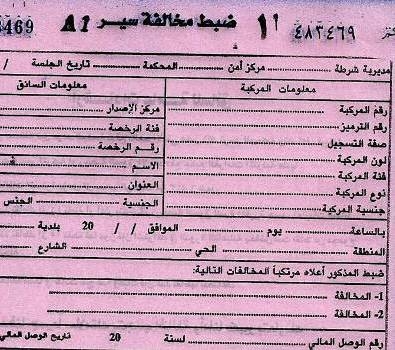 ٤٨٣٤٦٩ أ١ ضبط مخالفة سير A1 3469
مديرية شرطة مركز أمن المحكمة تاريخ الجلسة /
معلومات المركبة معلومات السائق
رقم المركبة مركز الإصدار
رقم الترميز فئة الرخصة
صفة التسجيل رقم الرخصة
لون المركبة الاسم
فئة المركبة العنوان
نوع المركبة الجنسية الجنس
جنسية المركبة
بالساعة يوم الموافق / / 20 بلدية
المنطقة الحي الشارع
ضبط المذكور أعلاه مرتكباً المخالفات التالية:
1- المخالفة
2- المخالفة
رقم الوصل المالي لسنة 20 تاريخ الوصل المالي